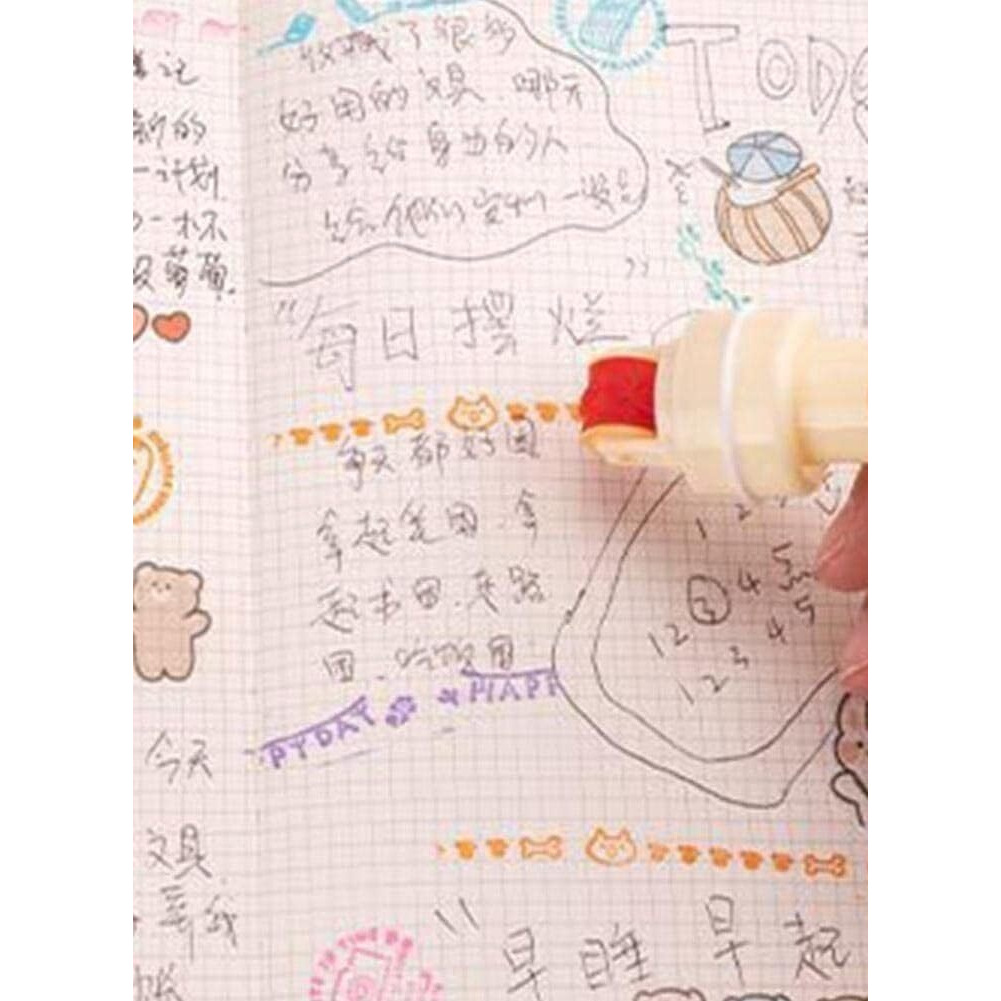 收藏了很多
好用的文具.哪天
分享给身边的人
给他们安利一波
TODO
新的
一计划
一杯
草莓.
"每日摆烂"
每天都好困
拿起笔困.拿
起书困.走路
困.吃饭困
1 2
1 2 3 4 5
1 2 3 4 5
PYDAY HAPP
今天
文具
"早睡早起